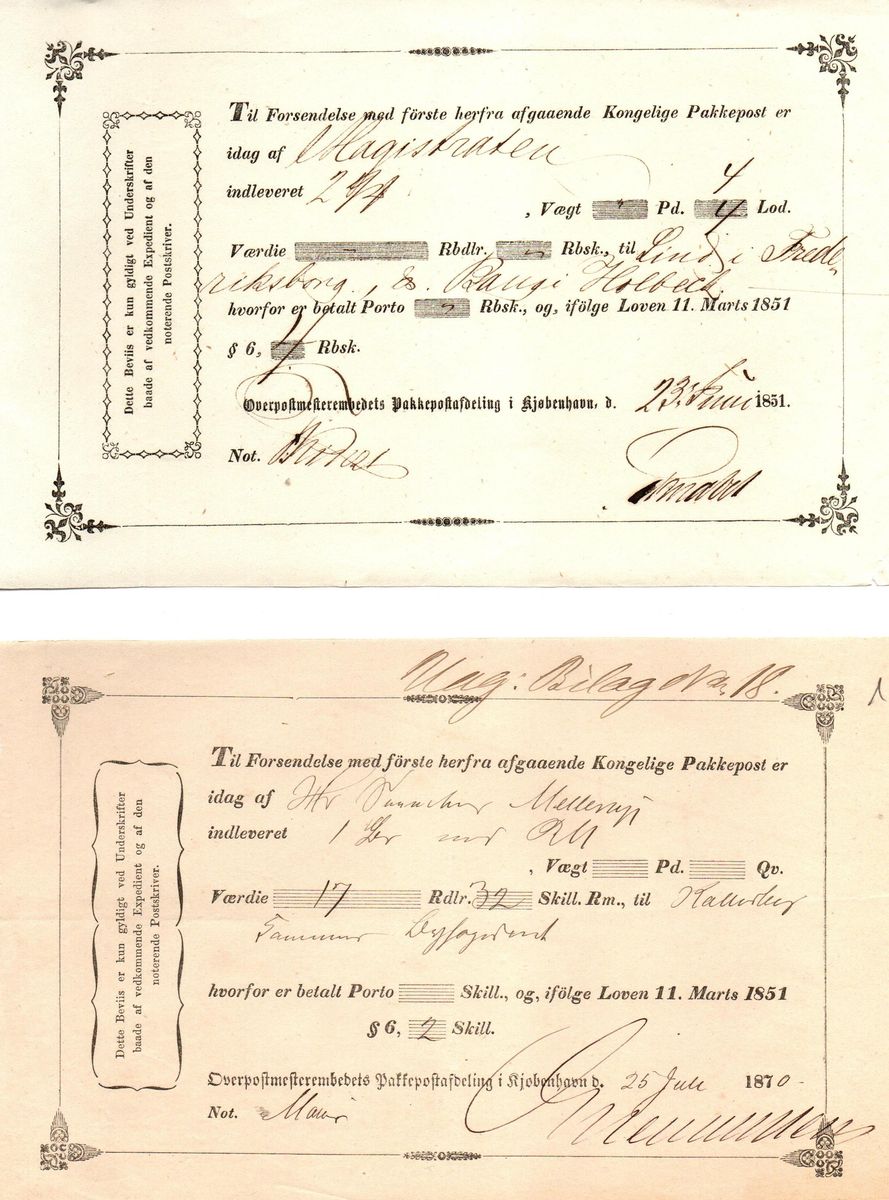 Dette Beviis er kun gyldigt ved Underskrifter
baade af vedkommende Expedient og af den
noterende Postskriver.
Til Forsendelse med förste herfra afgaaende Kongelige Pakkepost er
idag af Magistraten
indleveret 2
4
, Vægt Pd. 4 Lod.
Værdie - Rbdlr. - Rbsk., til Lind i Frede-
riksborg, & Bang i Holbeck.
hvorfor er betalt Porto Rbsk., og, ifölge Loven 11. Marts 1851
§ 6, 4 Rbsk.
Overpostmesterembedets Pakkepostafdeling i Kjøbenhavn, d. 23 Juni 1851.
Not.
Bilag No. 18.
Dette Beviis er kun gyldigt ved Underskrifter
baade af vedkommende Expedient og af den
noterende Postskriver.
Til Forsendelse med förste herfra afgaaende Kongelige Pakkepost er
idag af Hr Mellerup
indleveret 1 Br med
, Vægt Pd. Qv.
Værdie 17 Rdlr. 32 Skill. Rm., til
hvorfor er betalt Porto Skill., og, ifölge Loven 11. Marts 1851
§ 6, 2 Skill.
Overpostmesterembedets Pakkepostafdeling i Kjøbenhavn d. 25 Juli 1870
Not.